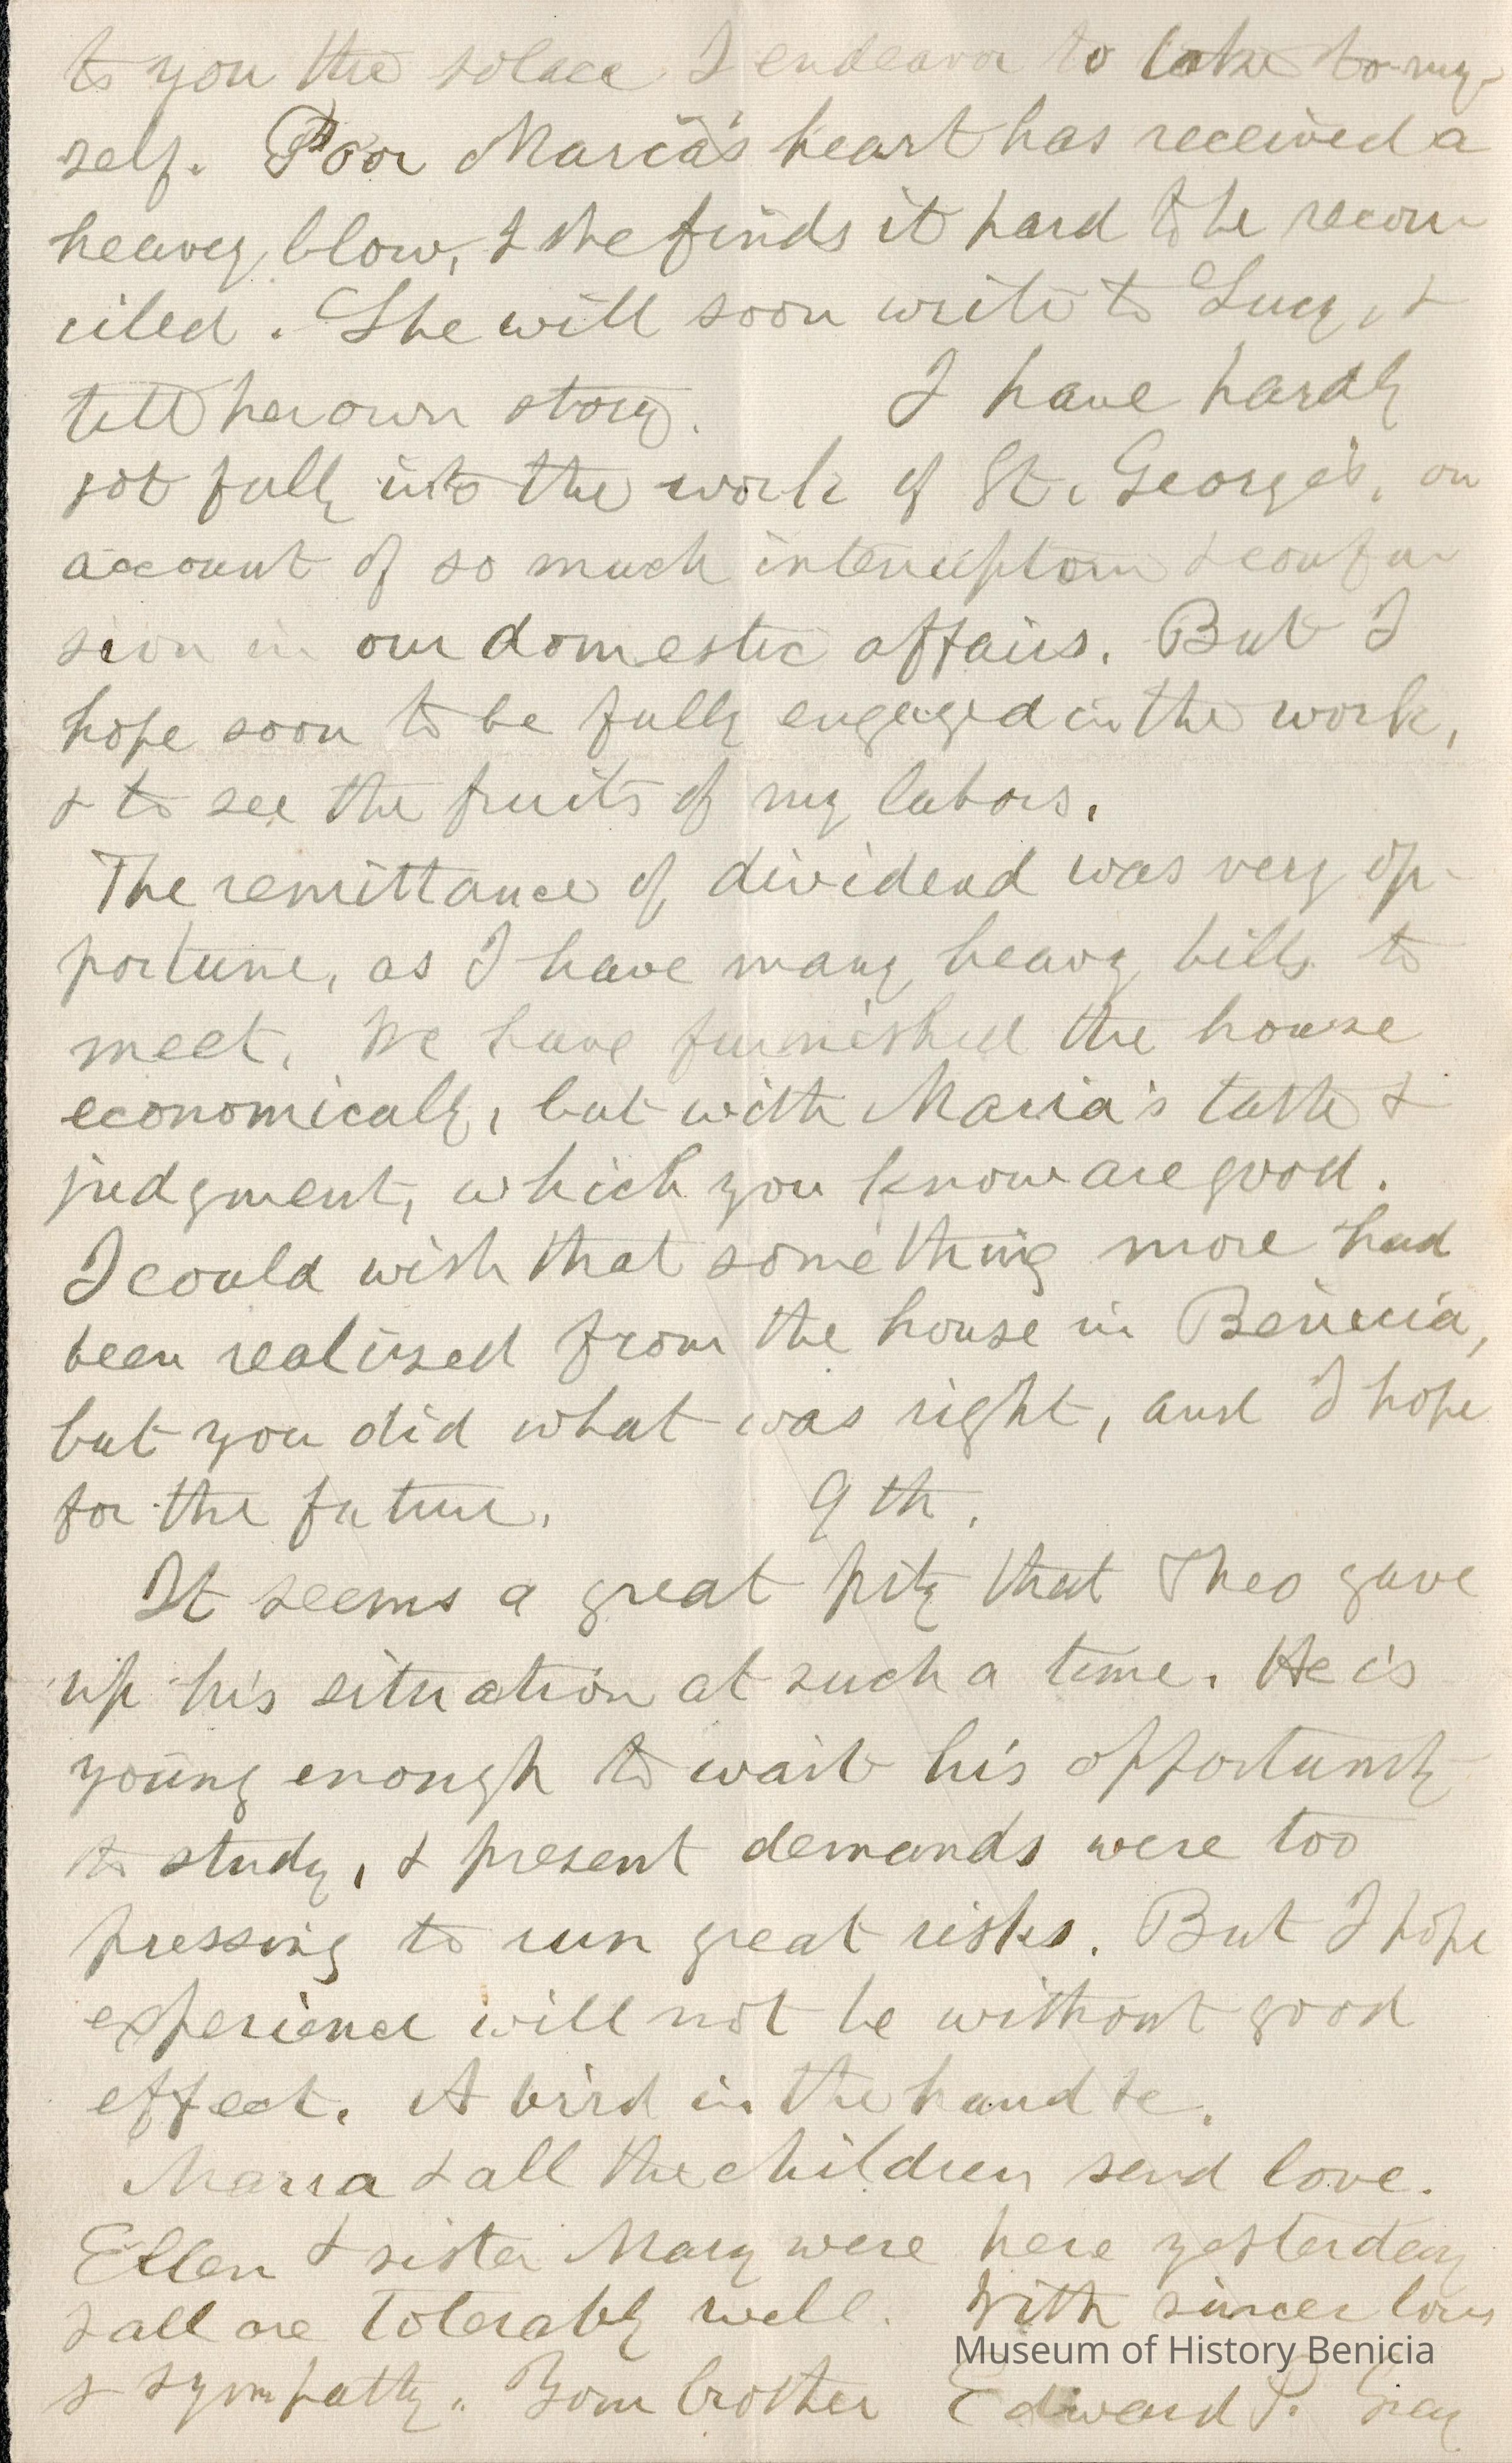 to you the solace I endeavor to take to my-
self. Poor Maria's heart has received a
heavy blow, & she finds it hard to be recon
ciled. She will soon write to Lucy, &
tell her own story. I have hardly
got fully into the work of St. George's, on
account of so much interruption & confu
sion in our domestic affairs. But I
hope soon to be fully engaged in the work,
& to see the fruits of my labors.
The remittance of dividend was very op-
portune, as I have many heavy bills to
meet. We have furnished the house
economically, but with Maria's taste &
judgment, which you know are good.
I could wish that something more had
been realized from the house in Benicia,
but you did what was right, and I hope
for the future. 9th.
It seems a great pity that Theo gave
up his situation at such a time. He is
young enough to wait his opportunity
to study, & present demands were too
pressing to run great risks. But I hope
experience will not be without good
effect. A bird in the hand &c.
Maria & all the children send love.
Ellen & sister Mary were here yesterday
& all are tolerably well. With sincere love
& sympathy. Your brother Edward P. Gray
Museum of History Benicia